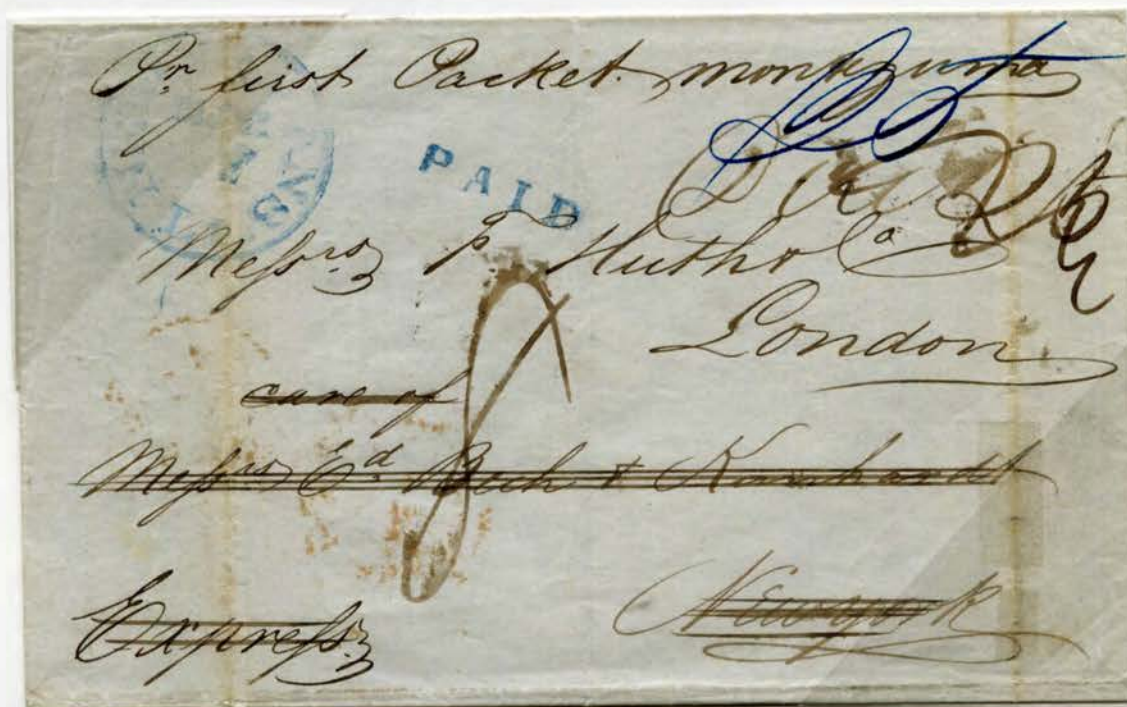 Pr. first Packet. montezuma
PAID
Messrs F. Huth & Co
London
care of
Messrs Ed. Bech & Kunhardt
Express
Newyork